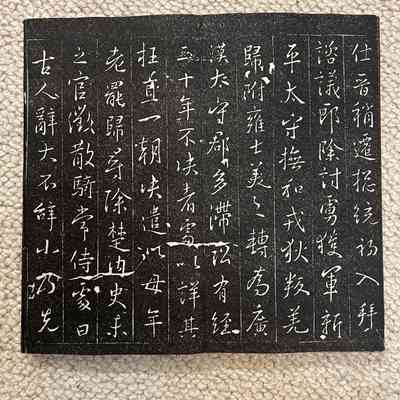 仕晋稍遷揔統入拜
諮議郎除討虜獲軍新
平太守撫和戎狄叛羌
歸附雍士美之轉為廣
漢太守郡多滯訟有經
三十年不决者處以詳其
枉直一朝决遣以母年
老罷歸尋除楚内史未
之官徵散騎常侍處曰
古人辭大不辭小乃先